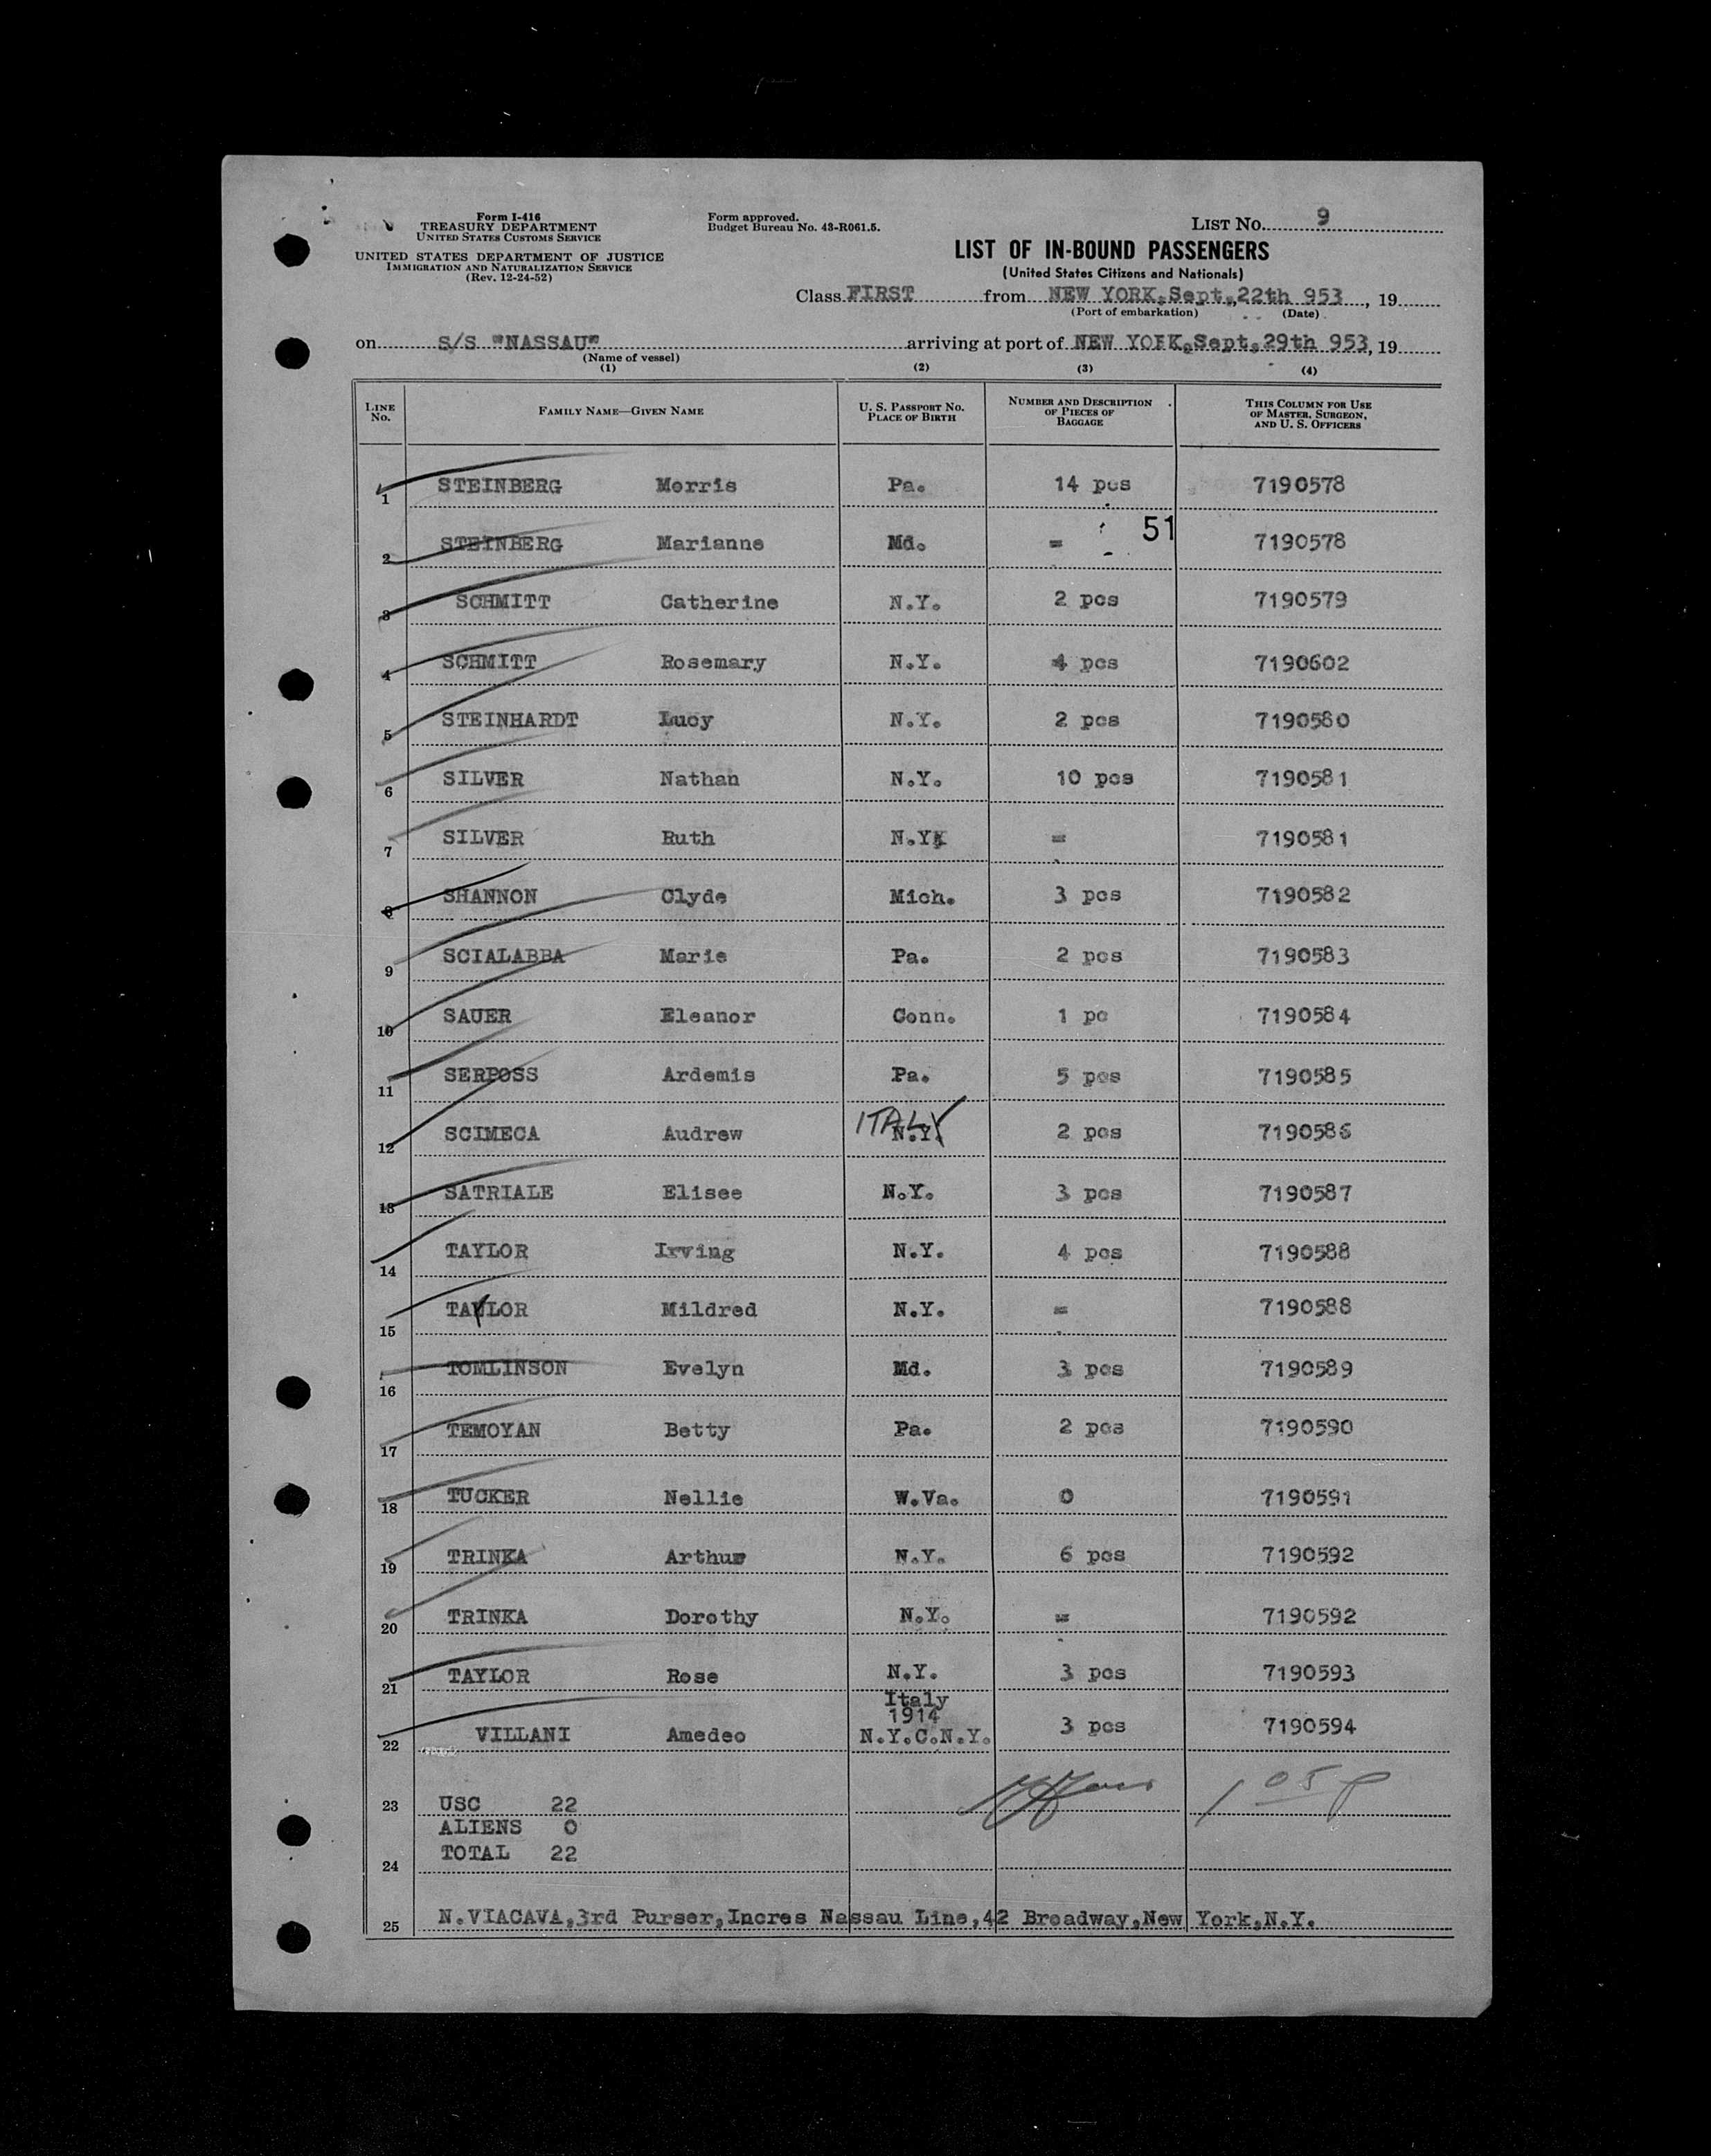 Form I-416
TREASURY DEPARTMENT
UNITED STATES CUSTOMS SERVICE
UNITED STATES DEPARTMENT OF JUSTICE
IMMIGRATION AND NATURALIZATION SERVICE
(Rev. 12-24-52)
Form approved.
Budget Bureau No. 43-R061.5.
LIST No. 9
LIST OF IN-BOUND PASSENGERS
(United States Citizens and Nationals)
Class FIRST from NEW YORK,Sept.,22th 953, 19
(Port of embarkation) (Date)
on S/S "NASSAU" arriving at port of NEW YORK,Sept,29th 953, 19
(Name of vessel)
(1) (2) (3) (4)
LINE No. FAMILY NAME—GIVEN NAME U. S. PASSPORT No. PLACE OF BIRTH NUMBER AND DESCRIPTION OF PIECES OF BAGGAGE THIS COLUMN FOR USE OF MASTER, SURGEON, AND U. S. OFFICERS
1 STEINBERG Morris Pa. 14 pcs 7190578
51
2 STEINBERG Marianne Md. = 7190578
3 SCHMITT Catherine N.Y. 2 pcs 7190579
4 SCHMITT Rosemary N.Y. 4 pcs 7190602
5 STEINHARDT Lucy N.Y. 2 pcs 7190580
6 SILVER Nathan N.Y. 10 pcs 7190581
7 SILVER Ruth N.Y. = 7190581
8 SHANNON Clyde Mich. 3 pcs 7190582
9 SCIALABBA Marie Pa. 2 pcs 7190583
10 SAUER Eleanor Conn. 1 pc 7190584
11 SERPOSS Ardemis Pa. 5 pcs 7190585
12 SCIMECA Audrew ITALY N.Y. 2 pcs 7190586
13 SATRIALE Elisee N.Y. 3 pcs 7190587
14 TAYLOR Irving N.Y. 4 pcs 7190588
15 TAYLOR Mildred N.Y. = 7190588
16 TOMLINSON Evelyn Md. 3 pcs 7190589
17 TEMOYAN Betty Pa. 2 pcs 7190590
18 TUCKER Nellie W.Va. 0 7190591
19 TRINKA Arthur N.Y. 6 pcs 7190592
20 TRINKA Dorothy N.Y. = 7190592
21 TAYLOR Rose N.Y. 3 pcs 7190593
Italy
1914
22 VILLANI Amedeo N.Y.C.N.Y. 3 pcs 7190594
23 USC 22
ALIENS 0
TOTAL 22
24
25 N.VIACAVA,3rd Purser,Incres Nassau Line,42 Broadway,New York,N.Y.